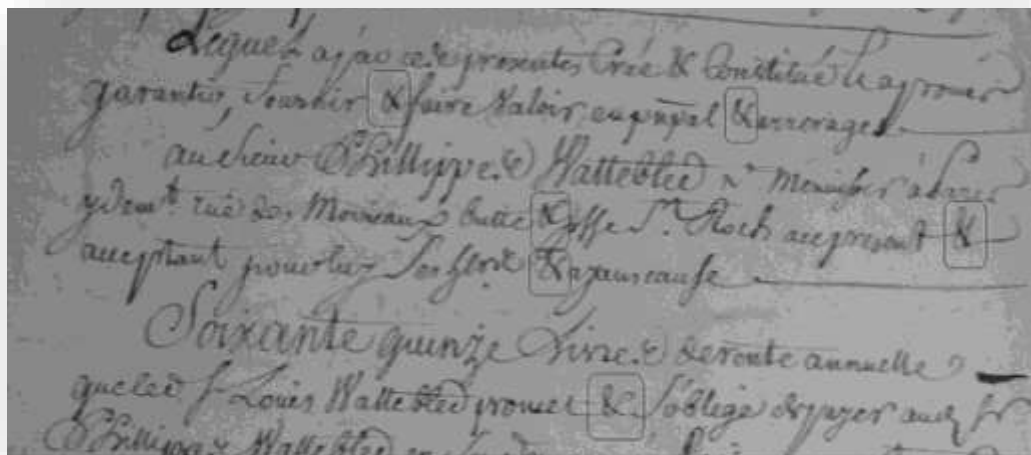 Lequel a par ces presentes Créé & Constitué & a promis
garantir, fournir & faire Valoir, en pnpal & arrerages
au sieur Phillippe Wattebled Me Menuisier à Paris
y demt. rüe des Moineaux butte & psse St. Roch a ce present &
acceptant pour luy ses hers & ayans cause
Soixante quinze Livres de rente annuelle
que led Sr Louis Wattebled promet & s'oblige de payer aud Sr
Phillippe Wattebled en